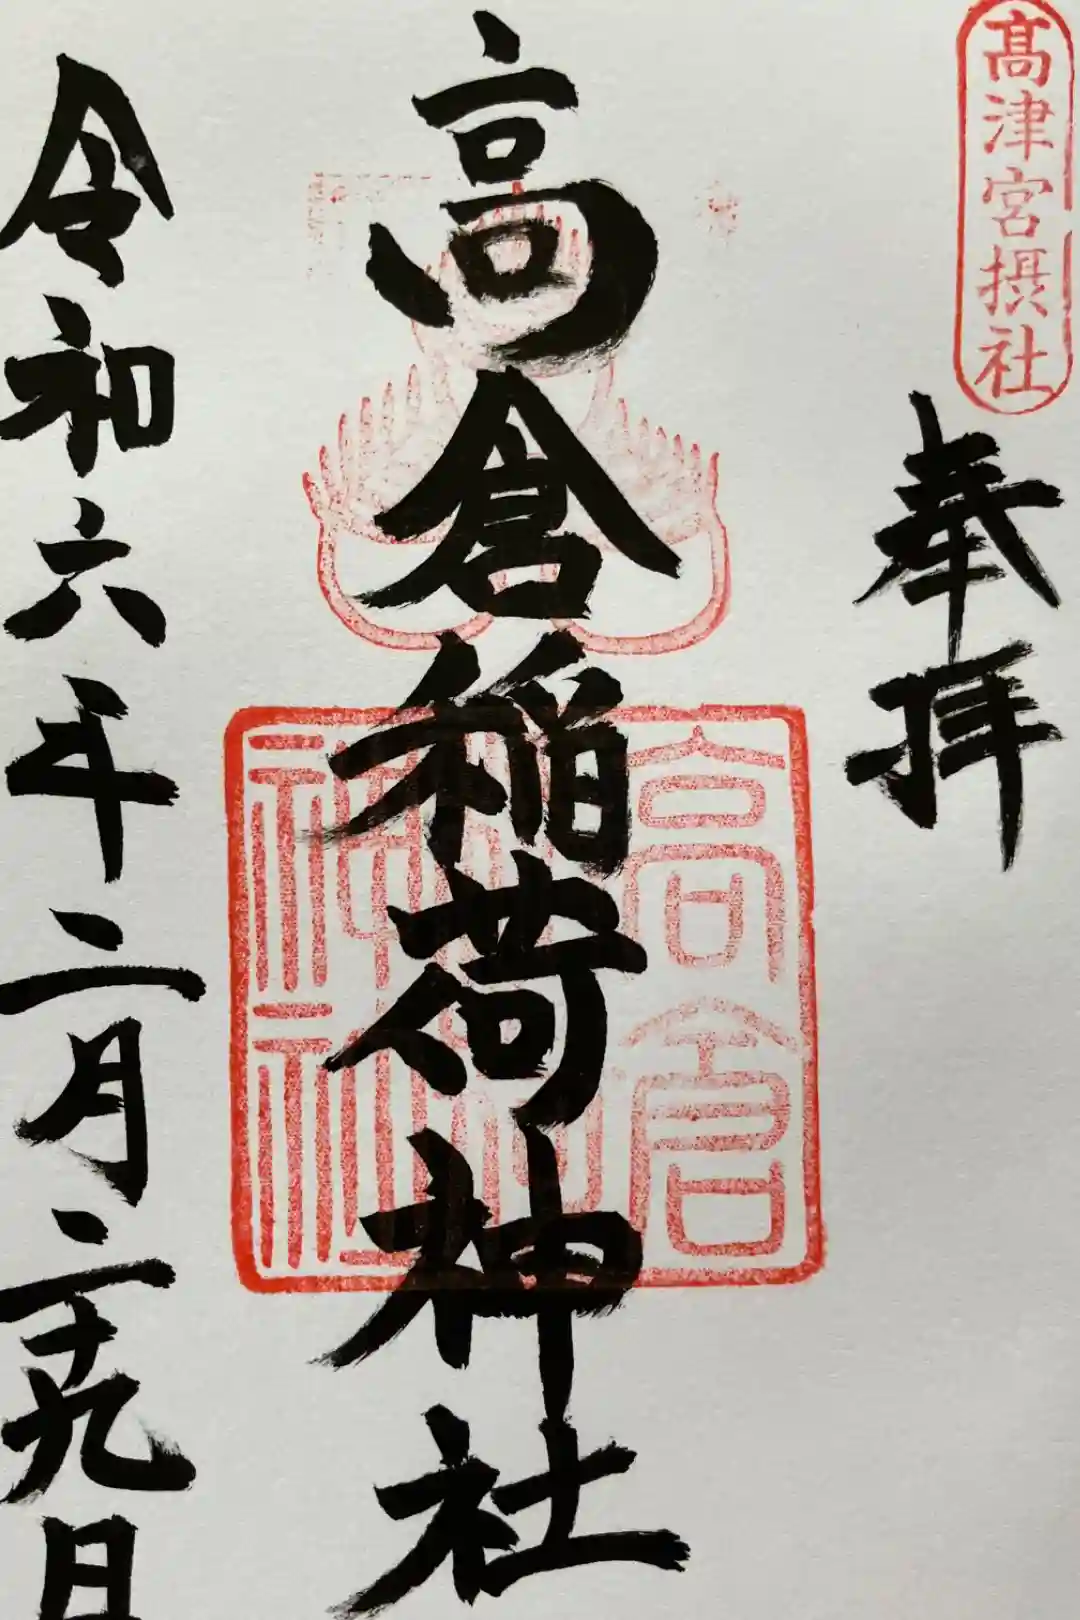 高津宮摂社
奉拝
高倉稲荷神社
高倉稲荷神社
令和六年二月二十九日